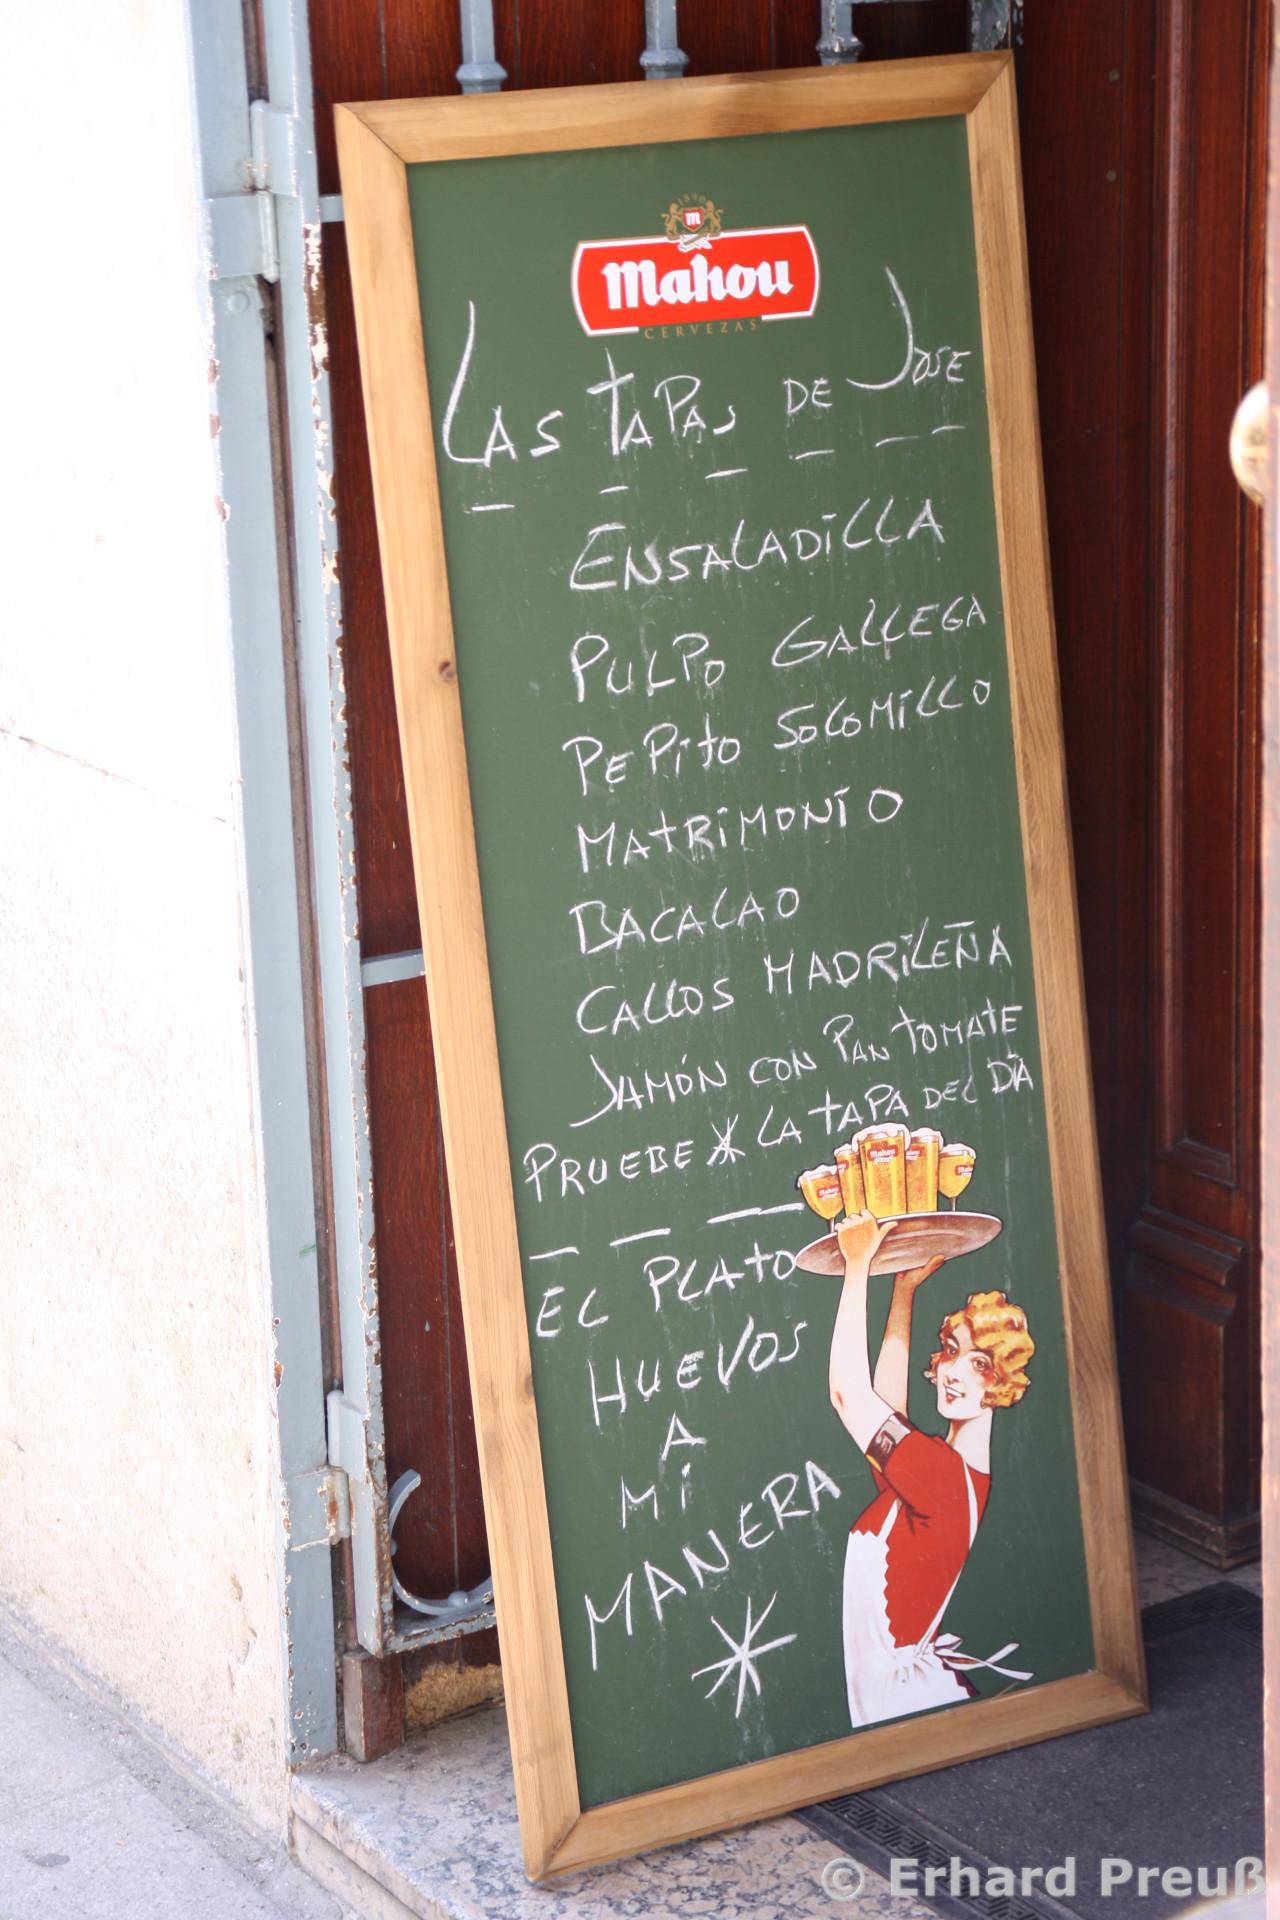 1890
M
Mahou
CERVEZAS
LAS TAPAS DE JOSE
ENSALADILLA
PULPO GALLEGA
PEPITO SOLOMILLO
MATRIMONIO
BACALAO
CALLOS MADRILEÑA
JAMÓN CON PAN TOMATE
PRUEBE * LA TAPA DEL DÍA
Mahou
Mahou
Mahou
Mahou
EL PLATO
HUEVOS
A
MI
MANERA
*
© Erhard Preuß